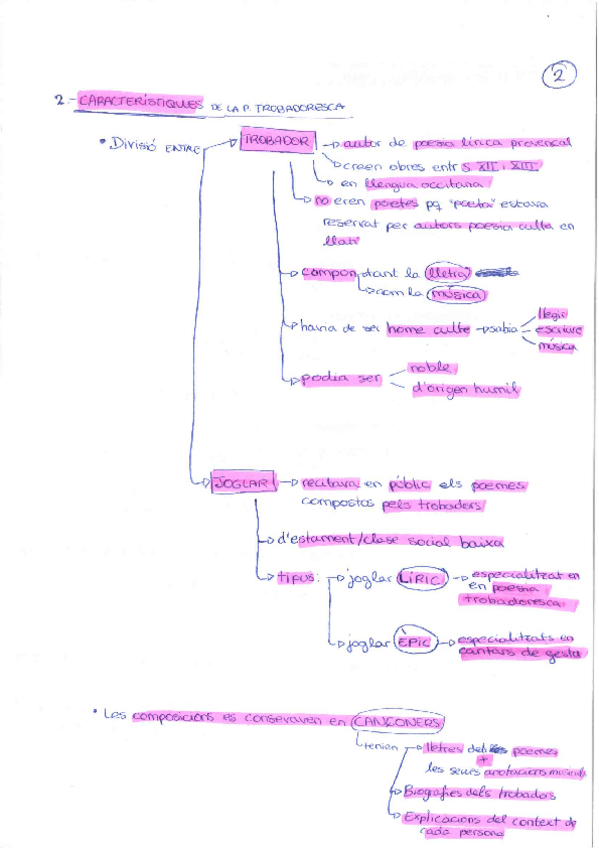 2
2.- CARACTERÍSTIQUES DE LA P. TROBADORESCA
• Divisió ENTRE
TROBADOR
autor de poesia lírica provençal
creen obres entr S. XII i XIII
en llengua occitana
no eren poetes pq "poeta" estava
reservat per autors poesia culta en
llatí
compon tant la lletra
com la música
havia de ser home culte → sabia
llegir
escriure
música
podia ser
noble
d'origen humil
JOGLAR → recitava en públic els poemes
compostos pels trobadors
d'estament/clase social baixa
tipus:
joglar LÍRIC → especialitzat en
en poesia
trobadoresca
joglar ÈPIC → especialitzats en
cantars de gesta
• Les composicions es conservaven en CANÇONERS
tenien → lletres dels poemes
+
les seues anotacions musicals
Biografies dels trobadors
Explicacions del context de
cada persona